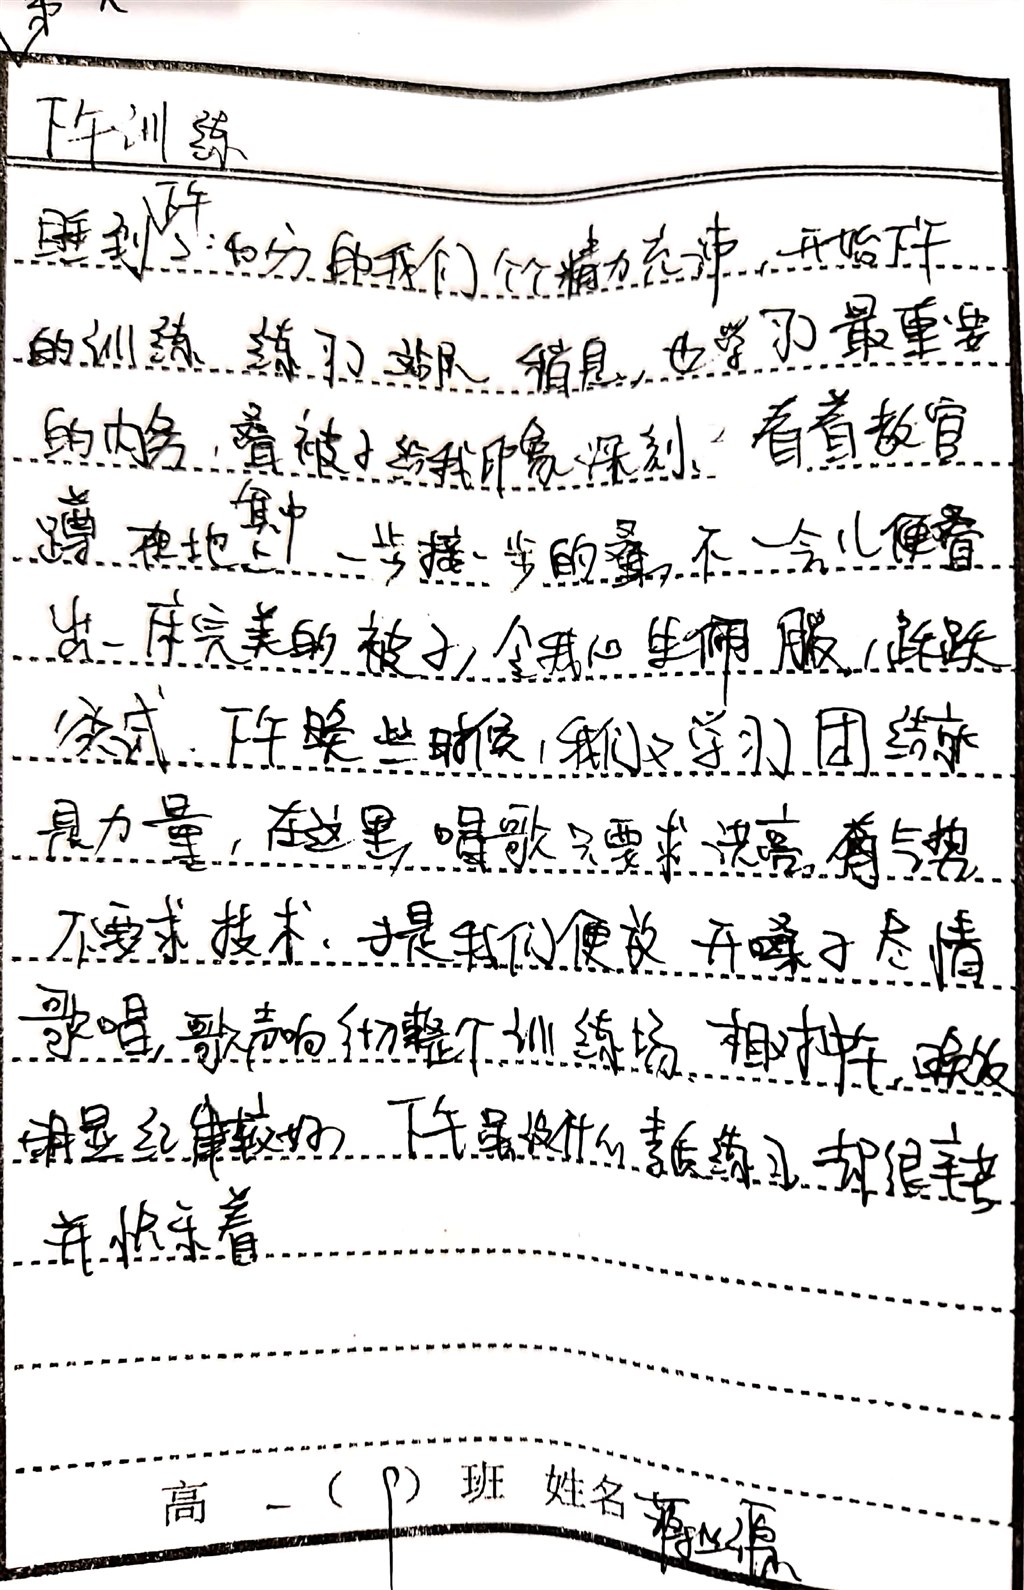 下午训练
睡到下午3:40分的我们个个精力充沛,开始下午
的训练 练习站队 稍息,也学习最重要
的内务,叠被子给我印象深刻,看着教官
蹲在地上 集中 一步接一步的叠,不一会儿便叠
出一床完美的被子,令我心生佩服,跃跃
欲试.下午晚些时候,我们又学习团结就
是力量,在这里,唱歌只要求洪亮,有气势
不要求技术.于是我们便放开嗓子尽情
歌唱,歌声响彻整个训练场.相对昨午,
明显纪律较好 下午虽没什么素质练习 却很辛苦
并快乐着
高一( )班 姓名